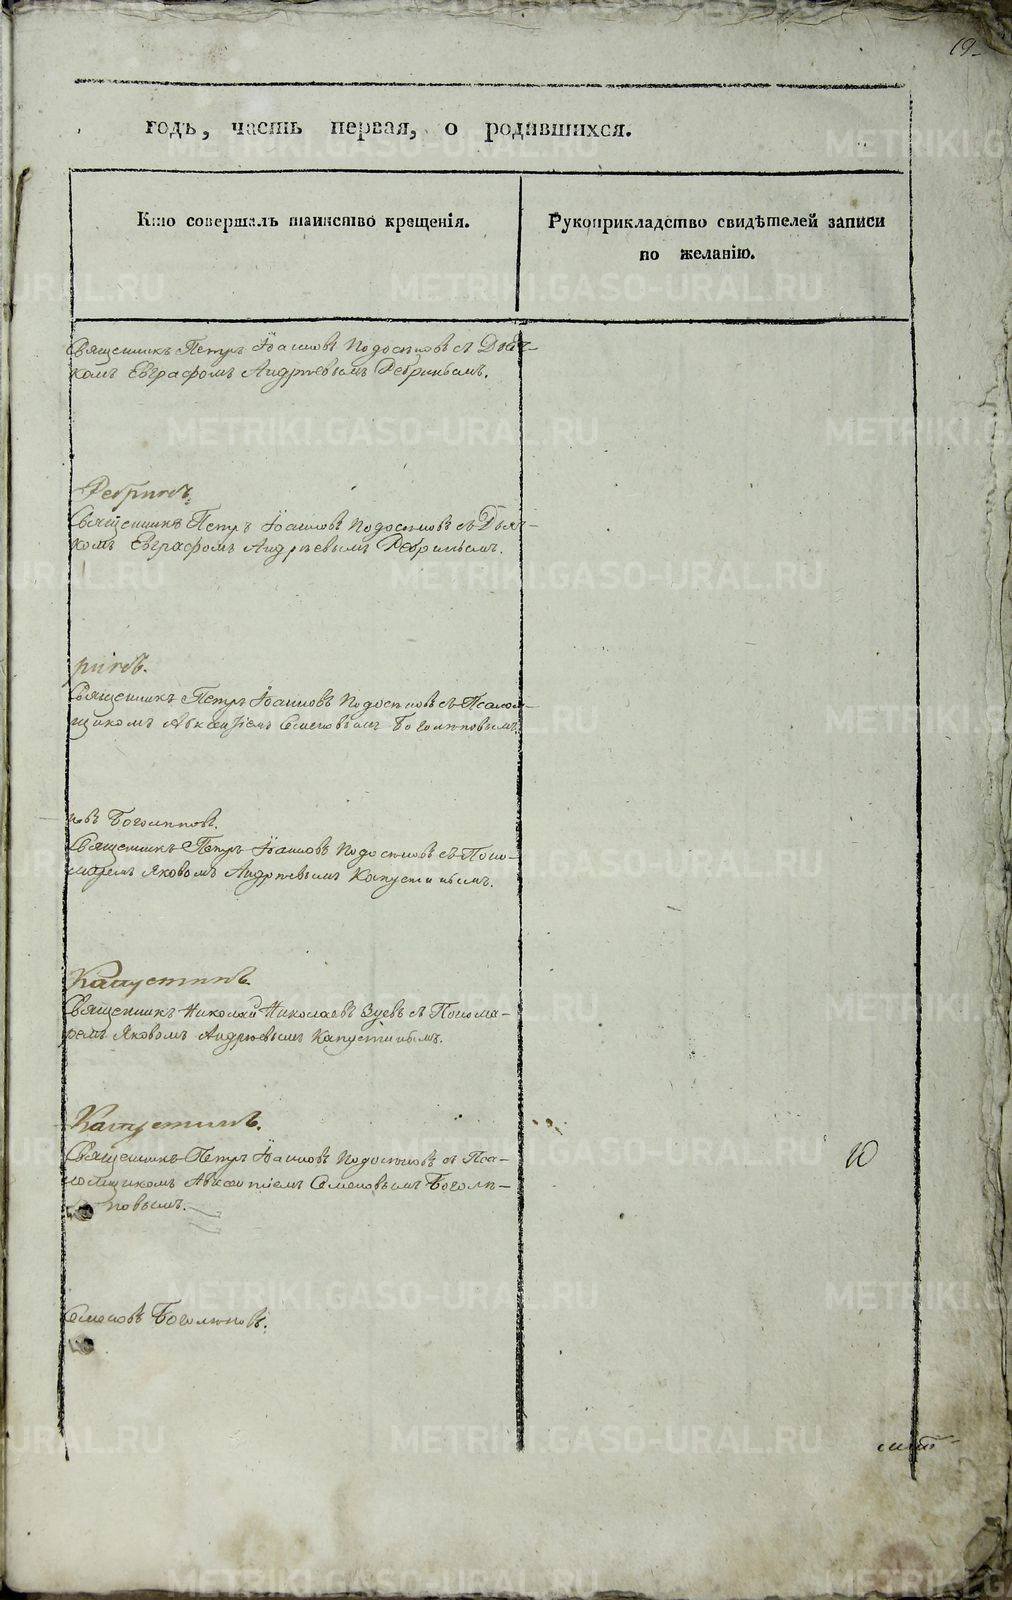 19
годъ, часть первая, о родившихся.
Кто совершалъ таинство крещенія.
Рукоприкладство свидѣтелей записи
по желанію.
Священникъ Петръ Іоанновъ съ Дьяч-
комъ Евграфомъ Андреевымъ Ребринымъ.
Ребринъ.
Священникъ Петръ Іоанновъ съ Дьяч-
комъ Евграфомъ Андреевымъ Ребринымъ.
Священникъ Петръ Іоанновъ съ Псалом-
щикомъ Семеновымъ Боголѣповымъ.
новъ Боголѣповъ.
Священникъ Петръ Іоанновъ съ Поно-
маремъ Яковомъ Андреевымъ Капустинымъ.
Капустинъ.
Священникъ Николай Николаевъ Зуевъ съ Понома-
ремъ Яковомъ Андреевымъ Капустинымъ.
Капустинъ.
Священникъ Петръ Іоанновъ съ Пса-
ломщикомъ Семеновымъ Боголѣ-
повымъ.
Семеновъ Боголѣповъ.
METRIKI.GASO-URAL.RU